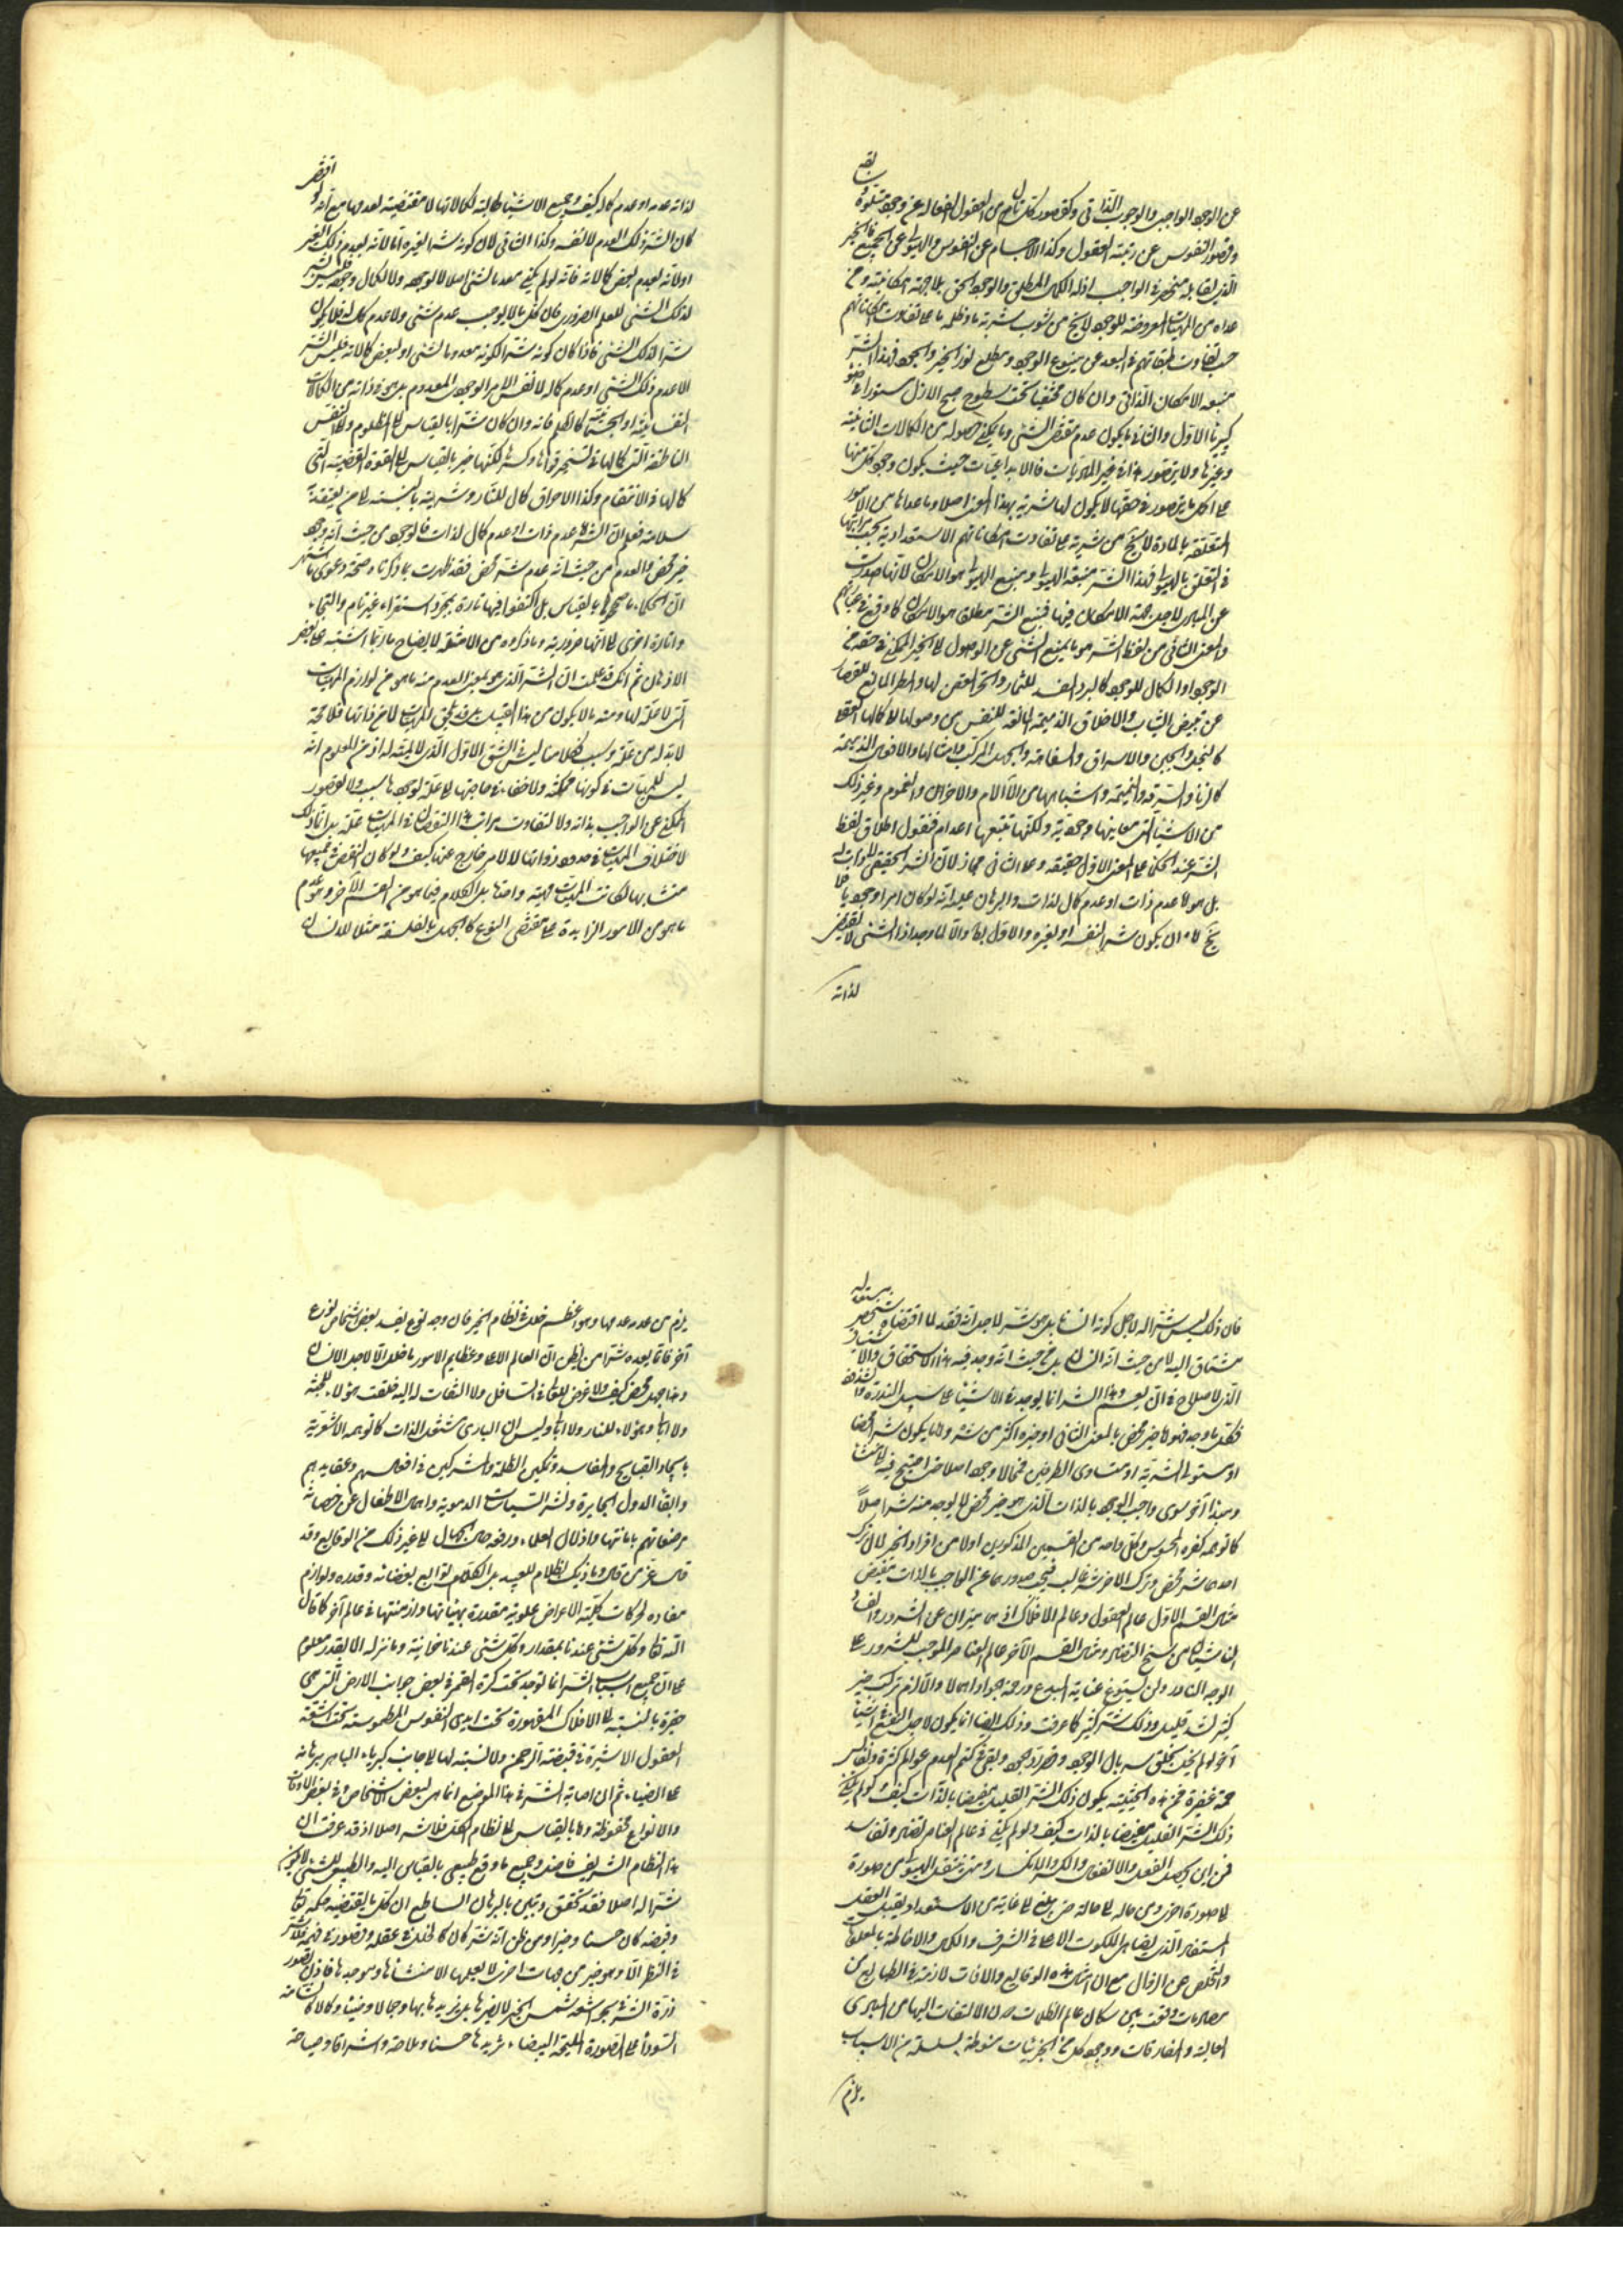 عن الوجود الواجبي والوجوب الذاتي وكقصور كل تال من العقول الفعالة عن وجود متلوه
وقصور النفوس عن رتبة العقول وكذا الاجسام عن النفوس والهيولى عن الجميع فالخير
الذي لا يقابله منحصر في الواجب اذ له الكمال المطلق والوجود الحق بلا جهة امكانية وما
عداه من المهيات المعروضة للوجود لا يخ من شوب شرية ما وظلمة ما على تفاوت امكاناتهم
حسب تفاوت طبقاتهم في البعد عن ينبوع الوجود ومطلع نور الخير والجود فهذا الشر
منبعه الامكان الذاتي وان كان مختفيا تحت سطوح صبح الازل مستورا في ضوء
كبرياء الاول والثاني ما يكون عدم مقتضى الشئ وما يمكن حصوله من الكمالات الثانية
وغيرها ولا يتصور هذا في غير الماديات فالابداعيات حيث يكون وجود كل منها
على اكمل ما يتصور في حقها لا يكون لها شرية بهذا المعنى اصلا وما عداها من الامور
المتعلقة بالمادة لا يخ من شرية على تفاوت امكاناتهم الاستعدادية بحسب مراتبها
في التعلق بالهيولى فهذا الشر منبعه الهيولى ومنبع الهيولى هو الامكان لانها صدرت
عن المبادي لاجل جهة الامكان فيها فمنبع الشر مطلقا هو الامكان كما وقع في عباراتهم
والمعنى الثاني من لفظ الشر هو ما يمنع الشئ عن الوصول الى الخير الممكن في حقه من
الوجود او الكمال للوجود كالبرد المفسد للثمار والحر المعفن لها والمطر المانع للقصار
عن تبييض الثياب والاخلاق الذميمة المانعة للنفس من وصولها الى كمالها العقلي
كالبخل والجبن والاسراف والسفاهة والجهل المركب وامثالها والافعال الذميمة
كالزنا والسرقة والنميمة واشباهها من الآلام والاحزان والغموم وغير ذلك
من الاشياء التي معاينها وجودية ولكنها تتبعها اعدام فنقول اطلاق لفظ
الشر عند الحكماء على المعنى الاول حقيقة وعلى الثاني مجاز لان الشر الحقيقي لا ذات له
بل هو اما عدم ذات او عدم كمال لذات والبرهان عليه انه لو كان امرا وجوديا
يخ اما ان يكون شرا لنفسه او لغيره والاول بط والا لما وجد اذ الشئ لا يقتضي
لذاته
لذاته عدمه او عدم كماله كيف وجميع الاشياء طالبة لكمالاتها لا مقتضية لعدمها مع انه لو اقتضى
كان الشر ذلك العدم لا نفسه وكذا الثاني لان كونه شرا لغيره اما لانه يعدم ذلك الغير
او لانه يعدم بعض كمالاته فانه لو لم يكن معدما لشئ اصلا لا لوجوده ولا لكمال وجوده فليس بشر
لذلك الشئ للعلم الضروري فان كل ما لا يوجب عدم شئ ولا عدم كمال له فلا يكون
شرا لذلك الشئ فاذا كان كونه شرا لكونه معدما لشئ او لبعض كمالاته فليس الشر
الا عدم ذلك الشئ او عدم كماله لا نفس الامر الوجودي المعدم بل هو في ذاته من الكمالات
النفسانية او الجسمانية كالظلم فانه وان كان شرا بالقياس الى المظلوم والى النفس
الناطقة التي كمالها في تسخير قواها وكسرها لكنها خير بالقياس الى القوة الغضبية التي
كمالها في الانتقام وكذا الاحراق كمال للنار وشرية بالنسبة الى من يفتقد
سلامته فعلم ان الشر اما عدم ذات او عدم كمال لذات فالوجود من حيث انه وجود
خير محض والعدم من حيث انه عدم شر محض فقد ظهرت بما ذكرناه صحة دعوى ما اشتهر
ان الحكماء ما صححوها بالقياس بل اكتفوا فيها تارة بمجرد استقراء غير تام والتجاء
واشارة اخرى الى انها ضرورية وما ذكروه من الامثلة لايضاح ما ربما اشتبه على بعض
الاذهان ثم انك قد علمت ان الشر الذي هو بمعنى العدم منه ما هو من لوازم المهيات
التي لا علة لها ومنه ما لا يكون من هذا القبيل بل قد يلحق المهيات لا من ذاتها فلا محة
لا بد له من علة وسبب كلامنا ليس في الشق الاول الذي لا لمية له اذ من المعلوم انه
ليس للمهيات في كونها ممكنة ولا خفاء في حاجتها الى علة لوجودها سبب ولا لقصور
الممكن عن الواجب بذاته ولا لتفاوت مراتب هذا النقصان في المهيات علة بل انما ذلك
لاختلاف المهيات في حدود ذواتها لا لامر خارج عنها كيف ولو كان النقص في جميعها
متشابها لكانت المهيات مهية واحدة بل الكلام فيما هو من القسم الآخر وهو عدم
ما هو من الامور الزايدة على مقتضى النوع كالجهل بالفلسفة مثلا للانسان
فان ذلك ليس شرا له لاجل كونه انسانا بل هو شر لاجل انه فقد لما اقتضاه شخص مستعد له
مشتاق اليه لا من حيث انه انسان بل من حيث انه وجد فيه هذا الاستحقاق والاشتياق
الذي لا صلاح في ان يعم وهذا الشر انما يوجد في الاشياء على سبيل الندرة والشذوذ
فكل ما وجد فهو اما خير محض بالمعنى الثاني او خيره اكثر من شره واما ما يكون شرا محضا
او مستولي الشرية او متساوي الطرفين فمما لا وجود له اصلا حتى احتيج فيه الى منشأ
ومبدأ آخر سوى واجب الوجود بالذات الذي هو خير محض لا يوجد منه شر اصلا
كما توهمه كفرة المجوس وكل واحد من القسمين المذكورين اولا من افراد الخير لان ترك
احدهما شر محض وترك الآخر شر غالب فيجب صدورهما عن الواجب بالذات بتفيض
مثال القسم الاول عالم العقول وعالم الافلاك اذ هما ميزان عن الشرور والفساد
الناشية من سنخ التضاد ومثال القسم الآخر عالم العناصر الموجب للشرور على
الوجه النادر ولن يسوغ عناية المبدع ورحمة جواد اهمالا والا لزم ترك خير
كثير لشر قليل وذلك شر كثير كما عرفت وذلك ايضا انما يكون لاجل النفع في اشياء
آخر لو لم يكن يخلق سربال الوجود وقصر رداء جوده وبقي في كتم العدم عوالم كثيرة ونفايس
جمة غفيرة فمن هذه الحيثية يكون ذلك الشر القليل مقضيا بالذات كيف ولو لم يكن
ذلك الشر القليل مقضيا بالذات كيف ولو لم يكن في عالم العناصر تضاد وتفاسد
فمن اين يحصل الفعل والانفعال والكسر والانكسار ومتى تنتقل الهيولى من صورة
الى صورة اخرى ومن حالة الى حالة حتى يبلغ الى غاية من الاستعداد ويقبل العقل
المستفاد الذي يضاهي الملكوت الاعلى في الشرف والكمال والاحاطة بالمعلومات
والتخلص عن الزوال مع ان امثال هذه الوقايع والآفات لازمة في الطبايع من
مصادمات وقعت بين سكان عالم الظلمات من الالتفات اليها من المبادي
العالية والمفارقات ووجود كل من الجزئيات منوطة بسلسلة من الاسباب
يلزم
يلزم من عدمه عدمها وهو اعظم خللا في نظام الخير فان وجد نوع يفسد بعض اشخاص نوع
آخر فانما يعده شرا من يظن ان العالم الاعلى وعظايم الامور ما خلق الا لاجل الانسان
وهذا جهل محض كيف ولا غرض للعالي في السافل ولا التفات له اليه خلقت هؤلاء للجنة
ولا ابالي وهؤلاء للنار ولا ابالي وليس ان الباري شقي الذات كما توهمه الاشعرية
بايجاد القبايح والمفاسد وتمكين الظلمة والمشركين في افعالهم وعقايدهم
وابقاء الدول الجايرة ونشر السيئات الدموية وايلام الاطفال عن خصانة
مرضعاتهم باماتتها واذلال العلماء ورفع حال الجهال الى غير ذلك من الوقايع وقد
قال عز من قال وما ربك بظلام للعبيد بل الكل من توابع لقضائه وقدره ولوازم
مفادة لحركات كلية لاغراض علوية مقدرة بهيئاتها وازمنتها في عالم آخر كما قال
الله تعالى وكل شئ عنده بمقدار وكل شئ عندنا خزائنه وما ننزله الا بقدر معلوم
على ان جميع اسباب الشر انما توجد تحت كرة القمر في بعض جوانب الارض التي هي
حقيرة بالنسبة الى الافلاك المقهورة تحت ايدي النفوس المطموسة تحت اشعة
العقول الاسيرة في قبضة الرحمن ولا نسبة لها الى جانب كبرياء الباهر برهانه
على الضياء ثم ان اصابة الشر في هذا الموضع انما هي لبعض الاشخاص وفي بعض الاوقات
والانواع محفوظة واما بالقياس الى نظام الكل فلا شر اصلا اذ قد عرفت ان
هذا النظام الشريف فاضل وجميع ما وقع طبيعي بالقياس اليه والطبيعي للشئ لا يكون
شرا له اصلا فقد تحقق وتبين بالبرهان الساطع ان كل ما يقتضيه حكمه تعالى
وفيضه كان حسنا وخيرا ومن ظن انه شر كان كالخلل في عقله وقصور في فهمه فلا شر
في النظر الا وهو خير من جهات اخرى لا يعلمها الا منشأها وموجدها فاذن تصور
ذرة الشر في بحر اشعة شمس الخير لا يضرها بل يزيدها بها وجمالا وضياء وكمالا كالشامة
السوداء على الصورة المليحة البيضاء يزيدها حسنا وملاحة واشراقا وصباحة